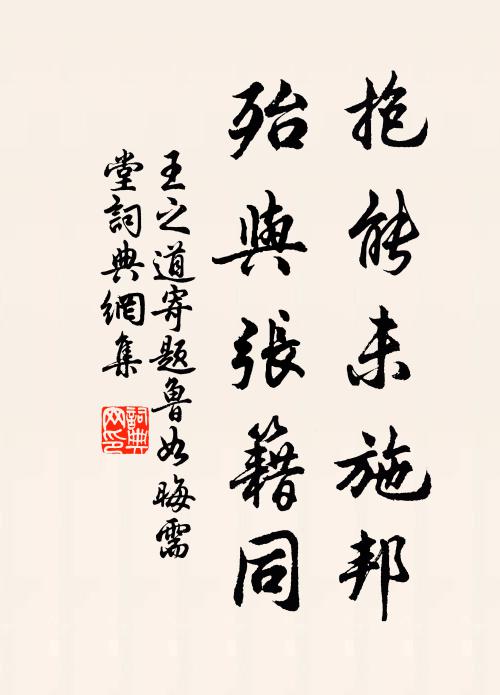 抱能未施邦
殆與張籍同
王之道寄题魯如晦需
堂詞典網集
詞典
网印